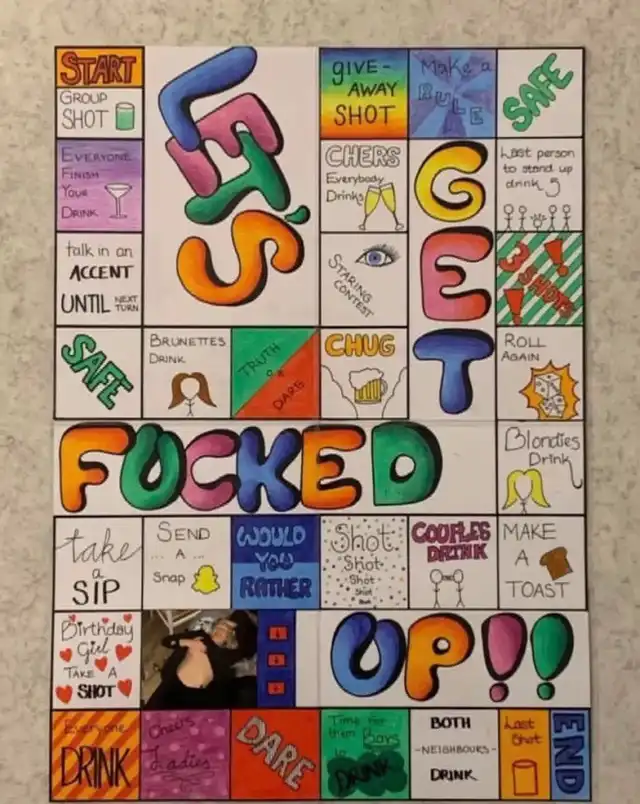 START
GROUP
SHOT
EVERYONE
FINISH
YOUR
DRINK
talk in an
ACCENT
UNTIL NEXT
TURN
SAFE
BRUNETTES
DRINK
TRUTH
OR
DARE
LET'S
GIVE-
AWAY
SHOT
CHERS
Everybody
Drinks
STARING
CONTEST
CHUG
Make a
RULE
GET
SAFE
Last person
to stand up
drink 5
3 SHOTS!!
ROLL
AGAIN
Blondies
Drink
FUCKED
take
a
SIP
SEND
... A ...
Snap
WOULD
YOU
RATHER
Shot
Shot
Shot
Shot
COUPLES
DRINK
MAKE
A
TOAST
Birthday
Girl
TAKE A
SHOT
UP!!
Everyone
DRINK
Cheers
Ladies
DARE
Time for
them Boys
to
DRINK
BOTH
-NEIGHBOURS-
DRINK
Last
Shot
END